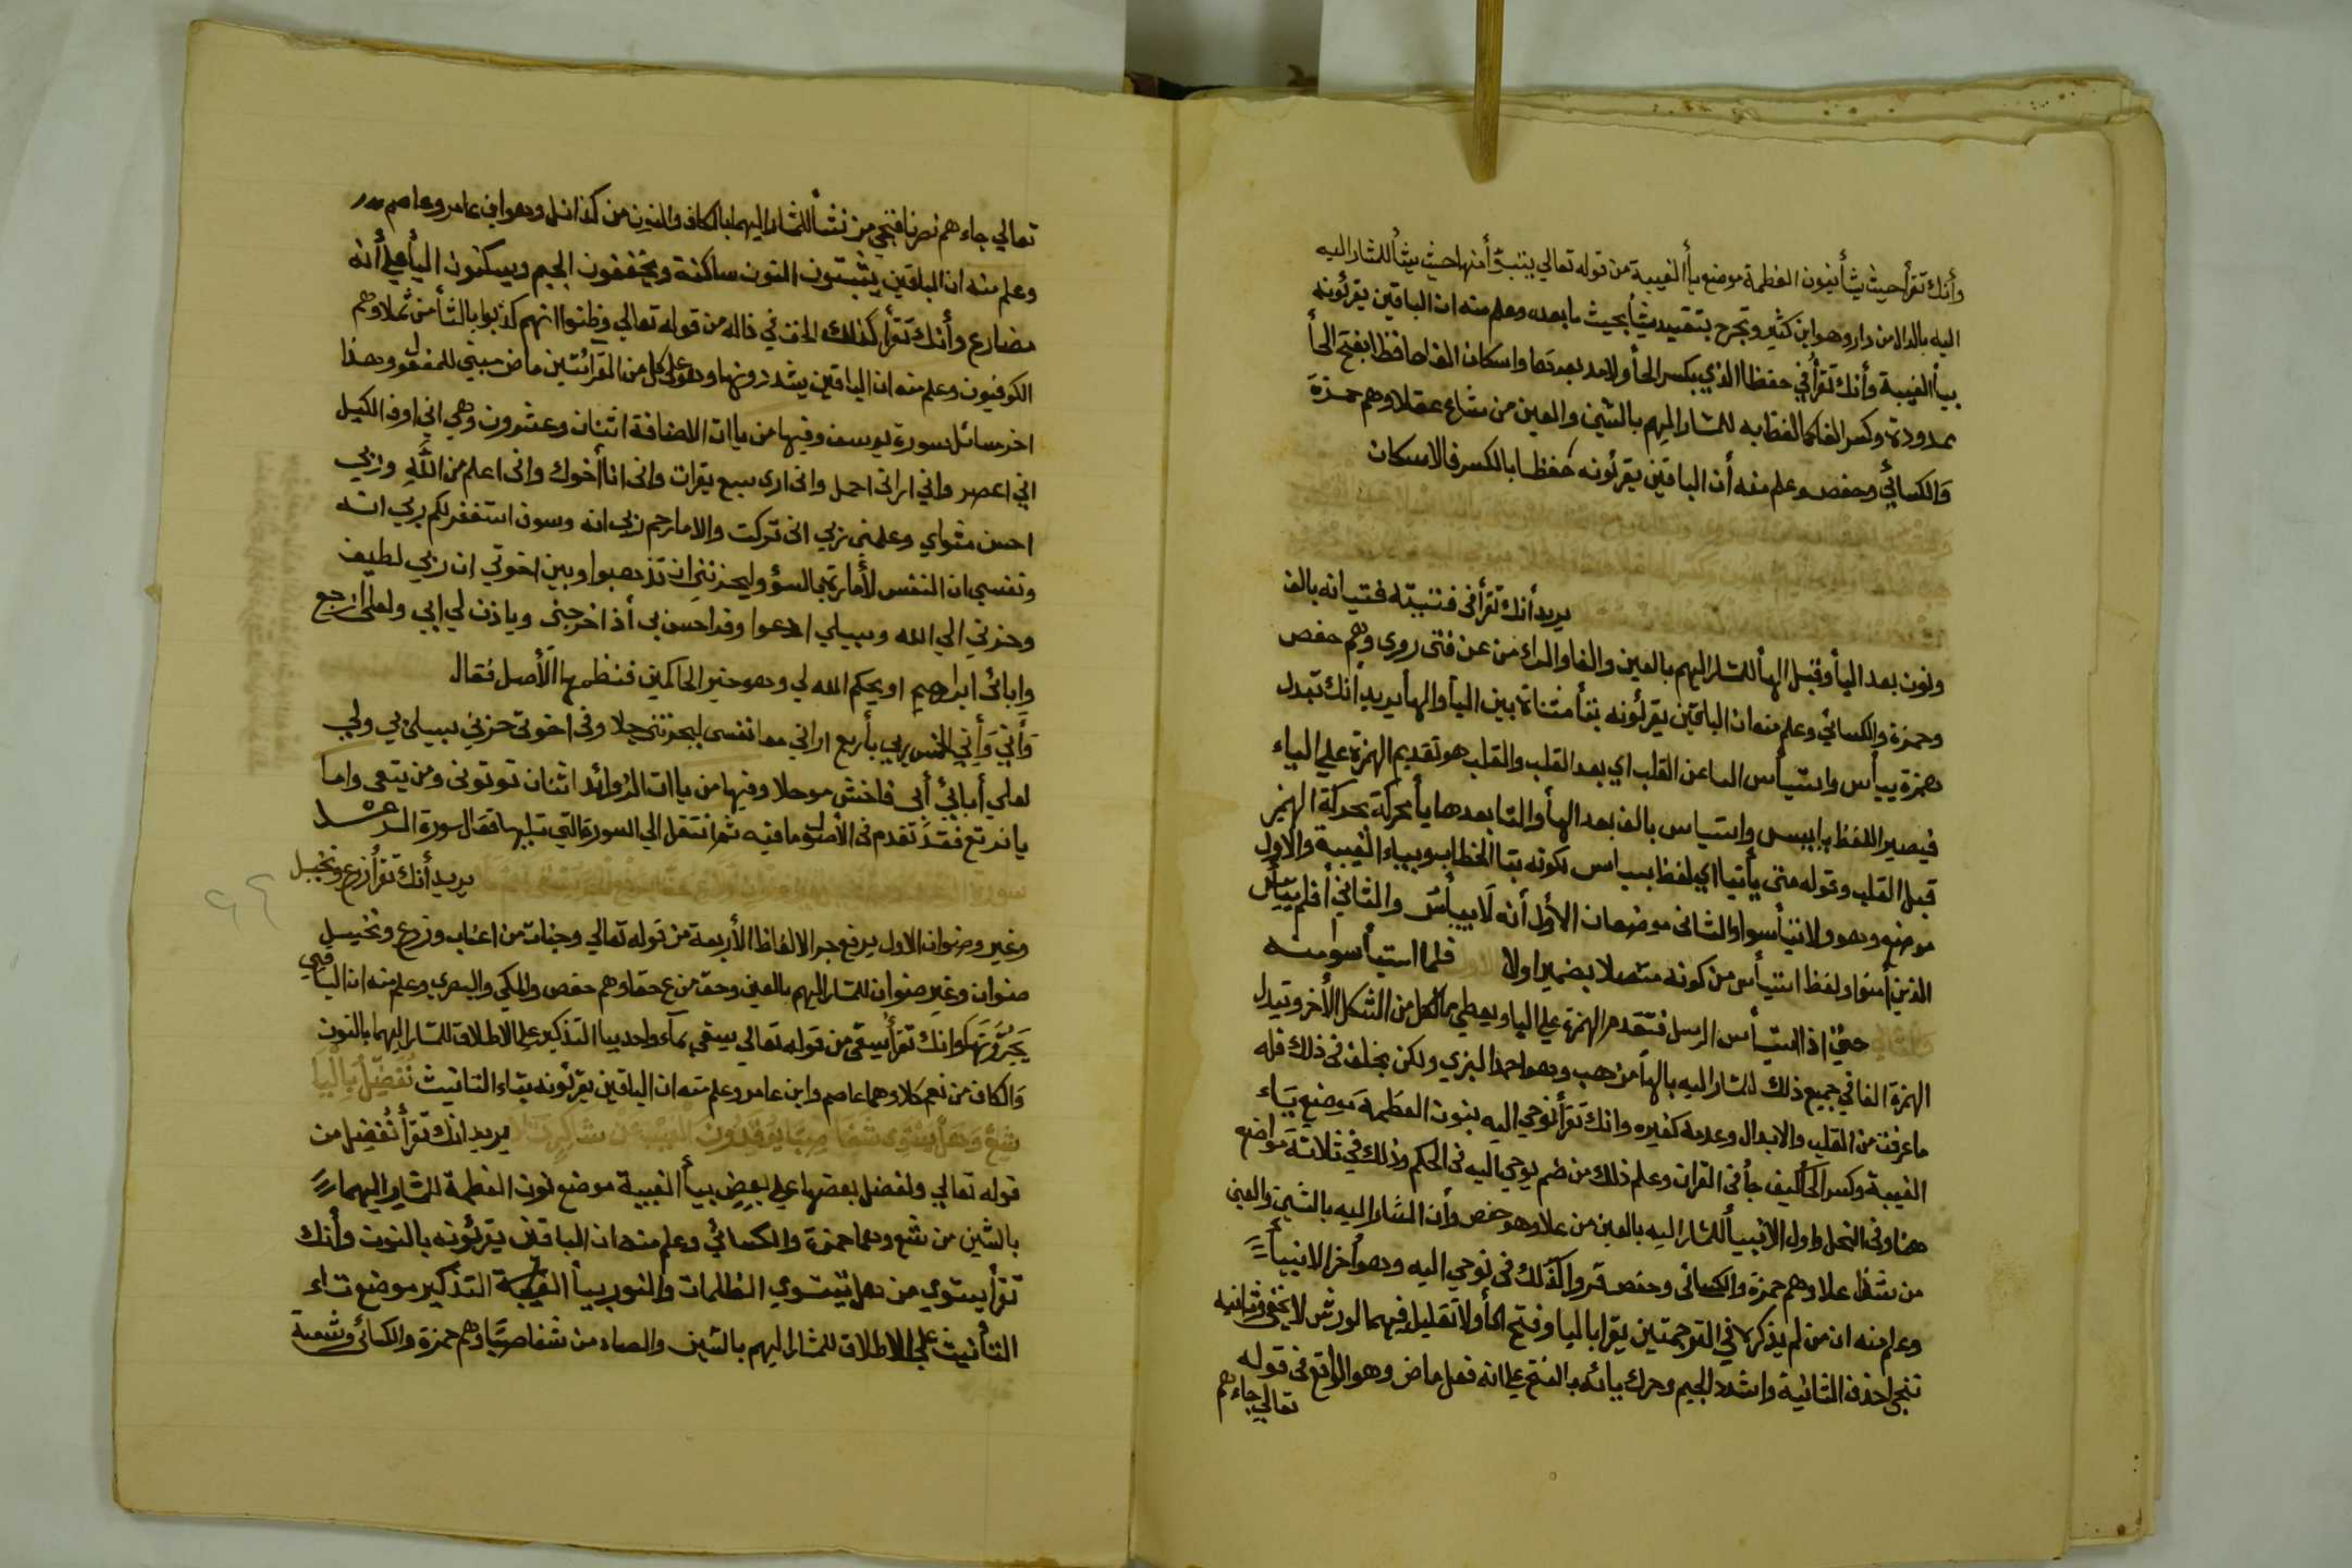 وأنك تقرأ حيث يشأ بنون العظمة موضع يأ الغيبة من قوله تعالي يتبوأ منها حيث يشأ للمشار اليه
اليه بالدال من دار وهو ابن كثير وتجرح بتقييد يشأ بحيث ما بعده وعلم منه ان الباقين يقرئونه
بيأ الغيبة وأنك تقرأ في حفظا الذي بكسر الحأ ولا مد بعدها واسكان الفا حافظا بفتح الحأ
ممدودة وكسر الفا كما لفظ به للمشار اليهم بالشين والعين من شاع عقلا وهم حمزة
والكسائي وحفص وعلم منه أن الباقين يقرئونه حفظا بالكسر فالاسكان
يريد أنك تقرأ في فتيته فتيانه بالف
ونون بعد اليأ وقبل الهأ للمشار اليهم بالعين والفا والراء من عن فتى روى وهم حفص
وحمزة والكسائي وعلم منه ان الباقين يقرئونه بتأ مثناة بين اليأ والهأ يريد أنك تبدل
همزة ييأس واستيأس الفا عن القلب اي بعد القلب والقلب هو تقديم الهمزة علي الياء
فيصير اللفظ يايس واستياس بالف بعد الهأ والتا بعدها يأ محركة بحركة الهمز
قبل القلب وقوله متى يأتيا اي لفظ ييأس كونه بتا الخطاب وبياء الغيبة والاول
موضع وهو ولا تيأسوا والثانى موضعان الاول أنه لا ييأس والثاني أفلم ييأس
الذين أمنوا ولفظ استيأس من كونه متصلا بضمير اولا فلما استيأسوا منه
حتي اذا استيأس الرسل فتقدم الهمزة علي اليا ويعطي ما لكل من الشكل الأخر وتبدل
الهمزة الفا في جميع ذلك للمشار اليه بالهأ من هب وهو احمد البزي ولكن بخلف فى ذلك فله
ما عرفت من القلب والابدال وعدمه كغيره وانك تقرأ نوحي اليه بنون العظمة موضع ياء
الغيبة وكسر الحأ كيف جأ فى القران وعلم ذلك من ضم يوحي اليه فى الحكم وذلك في ثلاثة مواضع
هنا وفى النحل واول الانبيأ للمشار اليه بالعين من علا وهو حفص وأن المشار اليه بالشين والعين
من شذا علا وهم حمزة والكسائى وحفص قروا كذلك فى نوحي اليه وهو أخر الانبيأ
وعلم منه ان من لم يذكره في الترجمتين يقرا باليا وفتح الحأ ولا تقليل فيهما لورش لا يخفى وثانيه
ننجى احذف الثانية واشدد الجيم وحرك يائه بالفتح علي انه فعل ماض وهو الواقع فى قوله
تعالي جاءهم
تعالي جاءهم نصرنا فنجي من نشأ للمشار اليهما بالكاف والنون من كذا نل وهو ابن عامر وعاصم
وعلم منه ان الباقين يثبتون النون ساكنة ويخففون الجيم ويسكنون اليأ علي أنه
مضارع وأنك تقرأ كذلك الخف في ذاله من قوله تعالي وظنوا انهم كذبوا بالثأ من ثملا وهم
الكوفيون وعلم منه ان الباقين يشددونها وهو علي كل من القرائتين ماض مبني للمفعول وهذا
اخر مسائل سورة يوسف وفيها من ياات الاضافة اثنان وعشرون وهي اني اوف الكيل
اني اعصر واني اراني احمل وانى ارى سبع بقرات وانى انا أخوك وانى اعلم من الله وربي
احسن مثواي وعلمنى ربي انى تركت والا ما رحم ربي انه وسوف استغفر لكم ربي انه
ونفسي ان النفس لأمارة بالسؤ وليحزنني ان تذهبوا وبين اخوتي ان ربي لطيف
وحزني الي الله وسبيلي ادعوا وقد احسن بى أذ اخرجنى وياذن لي ابي ولعلى ارجع
وابائى ابراهيم او يحكم الله لي وهو خير الحاكمين فنظمها الأصل فقال
وأني وأني الخمس ربي بأربع اراني معا نفسي ليحزنني حلا وفى اخوتي حزني سبيلى بي ولي
لعلي أبائي أبى فاخش موحلا وفيها من ياات الزوائد اثنان توتونى ومن يتقى واما
يا نرتع فقد تقدم فى الأصل وما فيه ثم انتقل الي السورة التي تليها فقال سورة الرعد
يريد أنك تقرأ زرع ونخيل
وغير وصنوان الاول برفع جر الالفاظ الأربعة من قوله تعالي وجنات من اعناب وزرع ونخيل
صنوان وغير صنوان للمشار اليهم بالعين وحق من ع حقا وهم حفص والمكي والبصري وعلم منه ان الباقي
يجرونها وانك تقرأ يسقى من قوله تعالي يسقى بماء واحد بيا التذكير علي الاطلاق للمشار اليهما بالنون
والكاف من نعم كلا وهما عاصم وابن عامر وعلم منه ان الباقين يقرئونه بتاء التانيث نفضل باليا
يريد انك تقرأ نفضل من
قوله تعالي ونفضل بعضها علي بعض بيأ الغيبة موضع نون العظمة للمشار اليهما
بالشين من شع وهما حمزة والكسائي وعلم منه ان الباقين يقرئونه بالنون وأنك
تقرأ يستوي من هل تستوي الظلمات والنور بيأ الغيبة التذكير موضع تاء
التأنيث علي الاطلاق للمشار اليهم بالشين والصاد من شفا صيتا وهم حمزة والكسائي وشعبة